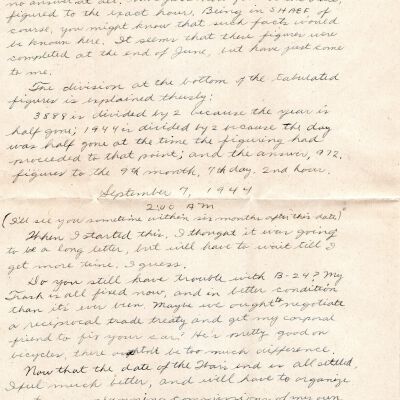 no answer at all.
figured to the exact hour. Being in SHAEF of
course, you might know that such facts would
be known here. It seems that these figures were
completed at the end of June, but have just come
to me.
The division at the bottom of the tabulated
figures is explained thusly:
3888 is divided by 2 because the year is
half gone; 1944 is divided by 2 because the day
was half gone at the time the figuring had
proceeded to that point; and the answer, 972,
figures to the 9th month, 7th day, 2nd hour.
September 7, 1944
2:00 AM
(I'll see you sometime within six months after this date)
When I started this, I thought it was going
to be a long letter, but will have to wait till I
get more time, I guess.
Do you still have trouble with B-24? My
Trash is all fixed now, and in better condition
than it's ever been. Maybe we ought to negotiate
a reciprocal trade treaty and get my corporal
friend to fix your car? He's pretty good on
bicycles, there oughtn't be too much difference.
Now that the date of the War's end is all settled,
I feel much better, and will have to organize
of my own